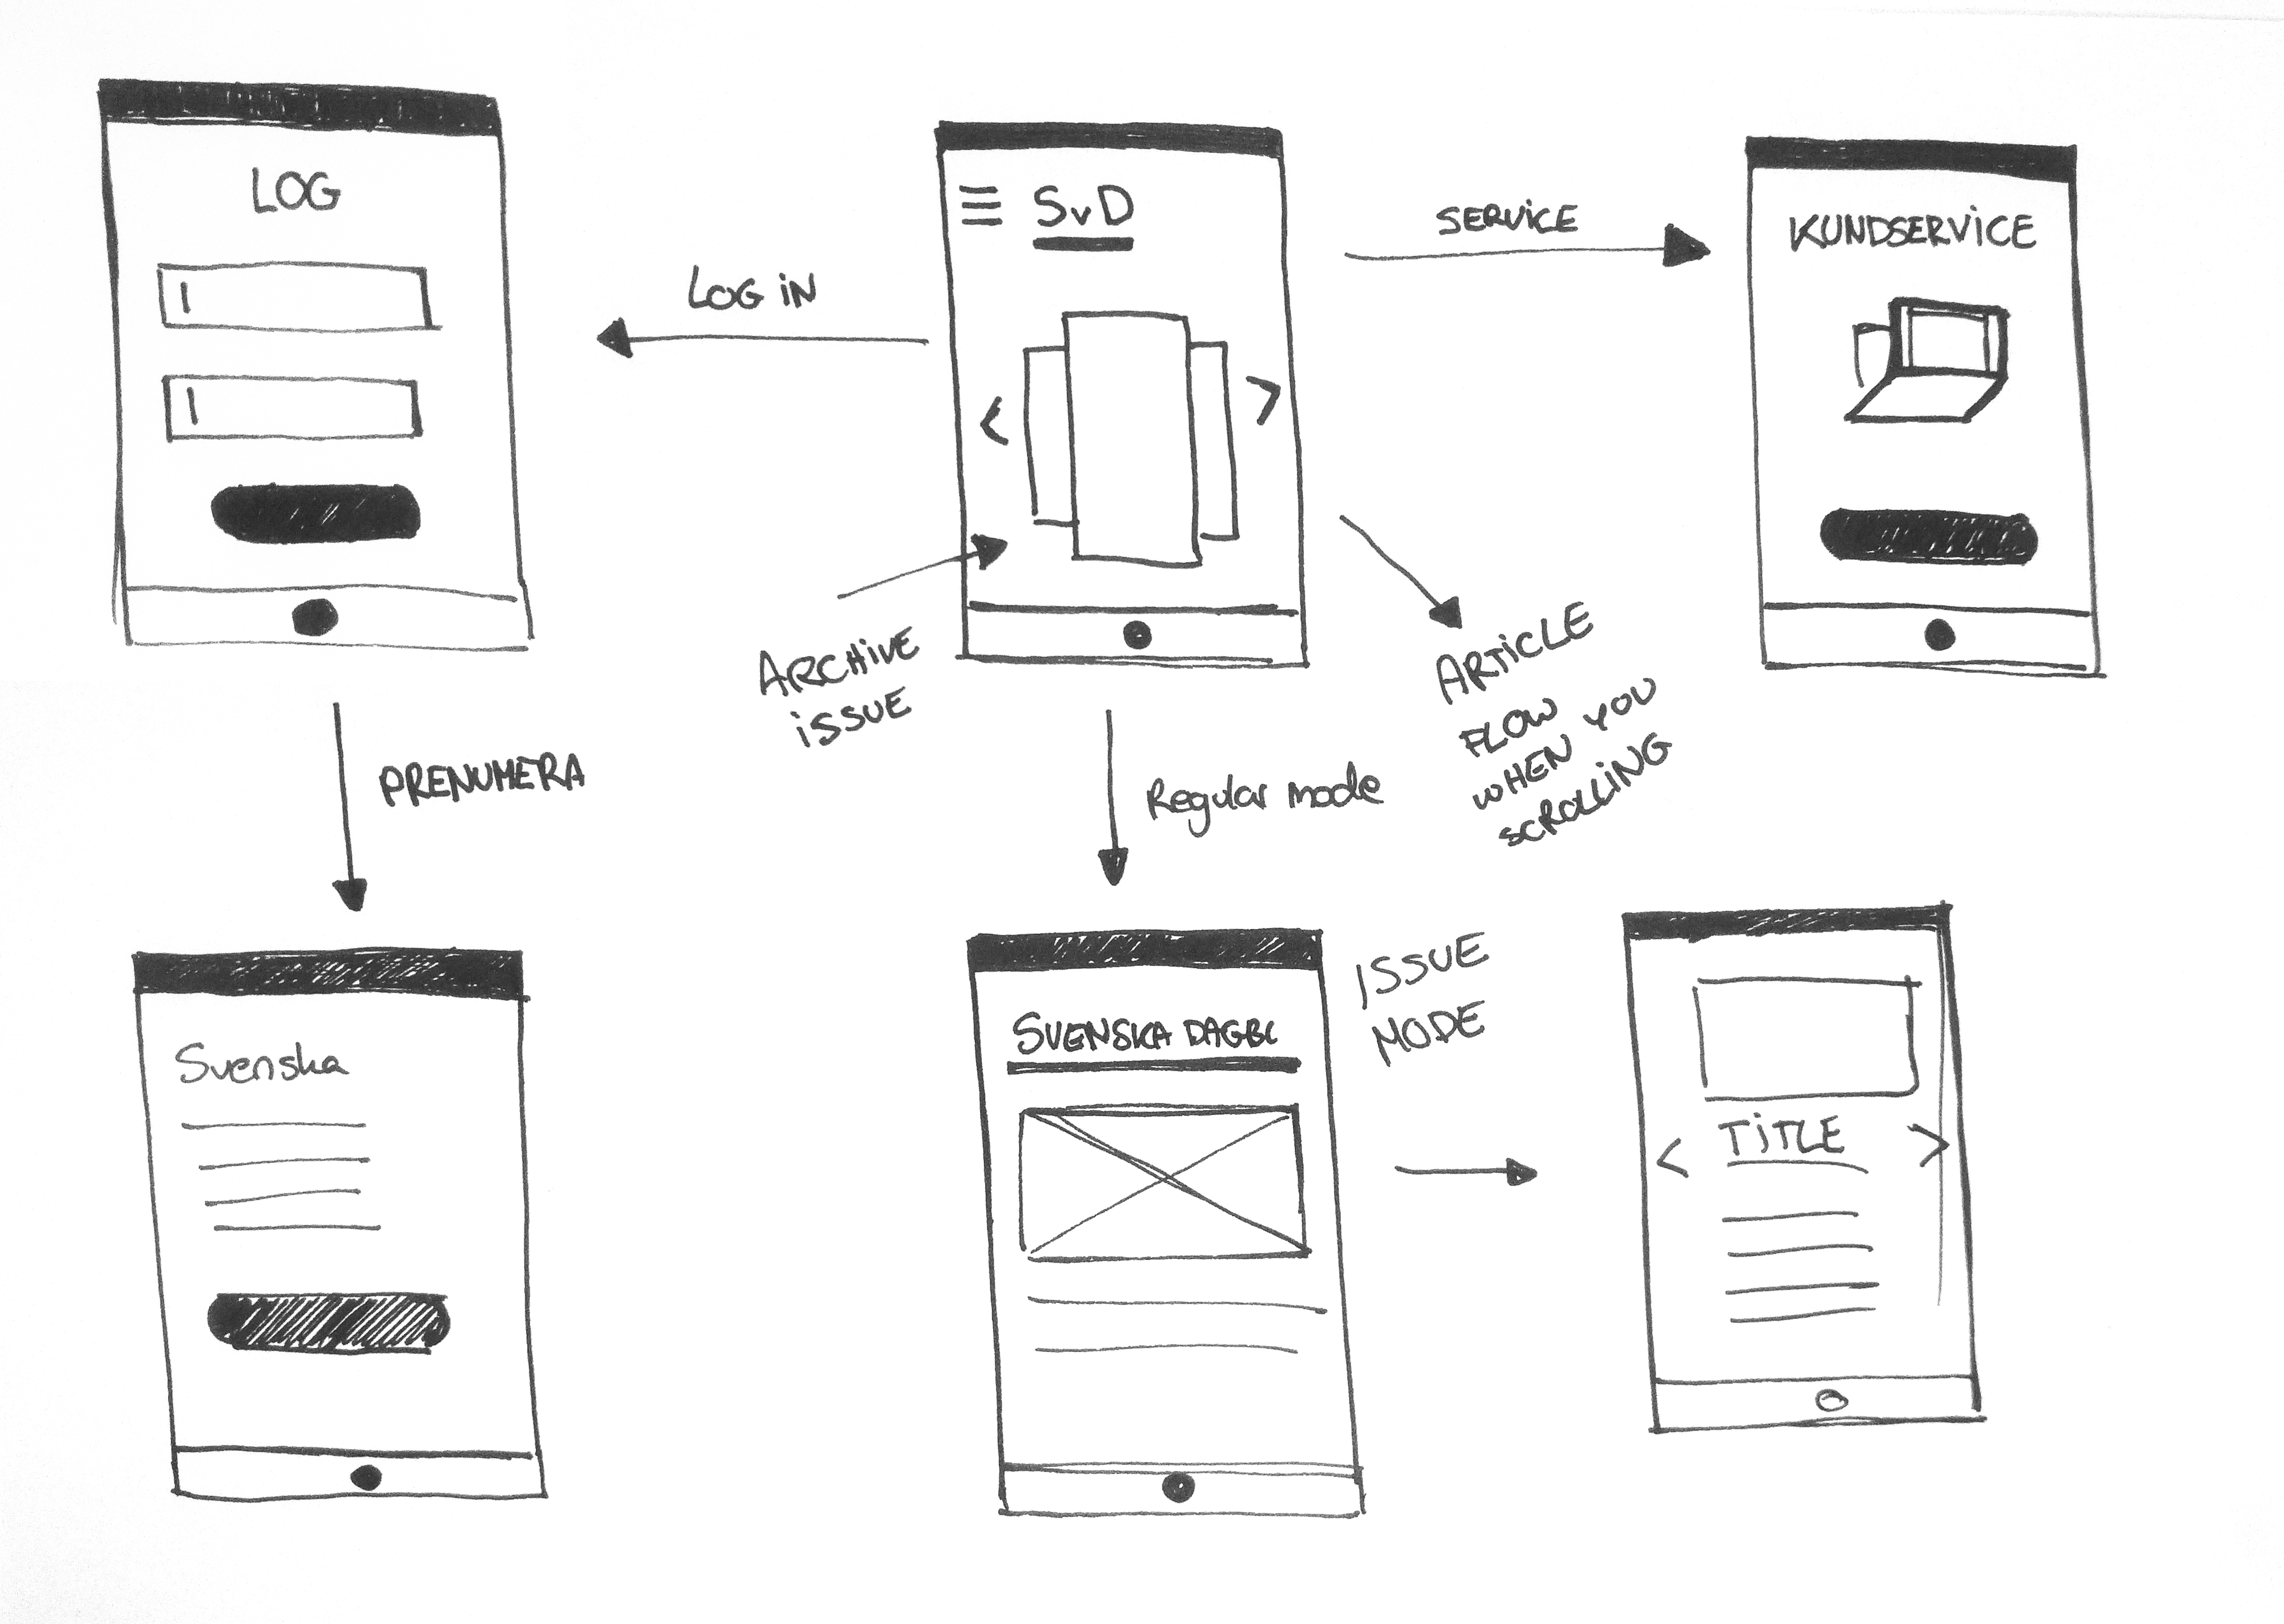 LOG
SvD
SERVICE
KUNDSERVICE
LOG IN
ARCHIVE
ISSUE
ARTICLE
FLOW
WHEN YOU
SCROLLING
PRENUMERA
Regular mode
Svenska
SVENSKA DAGBL
ISSUE
MODE
TITLE